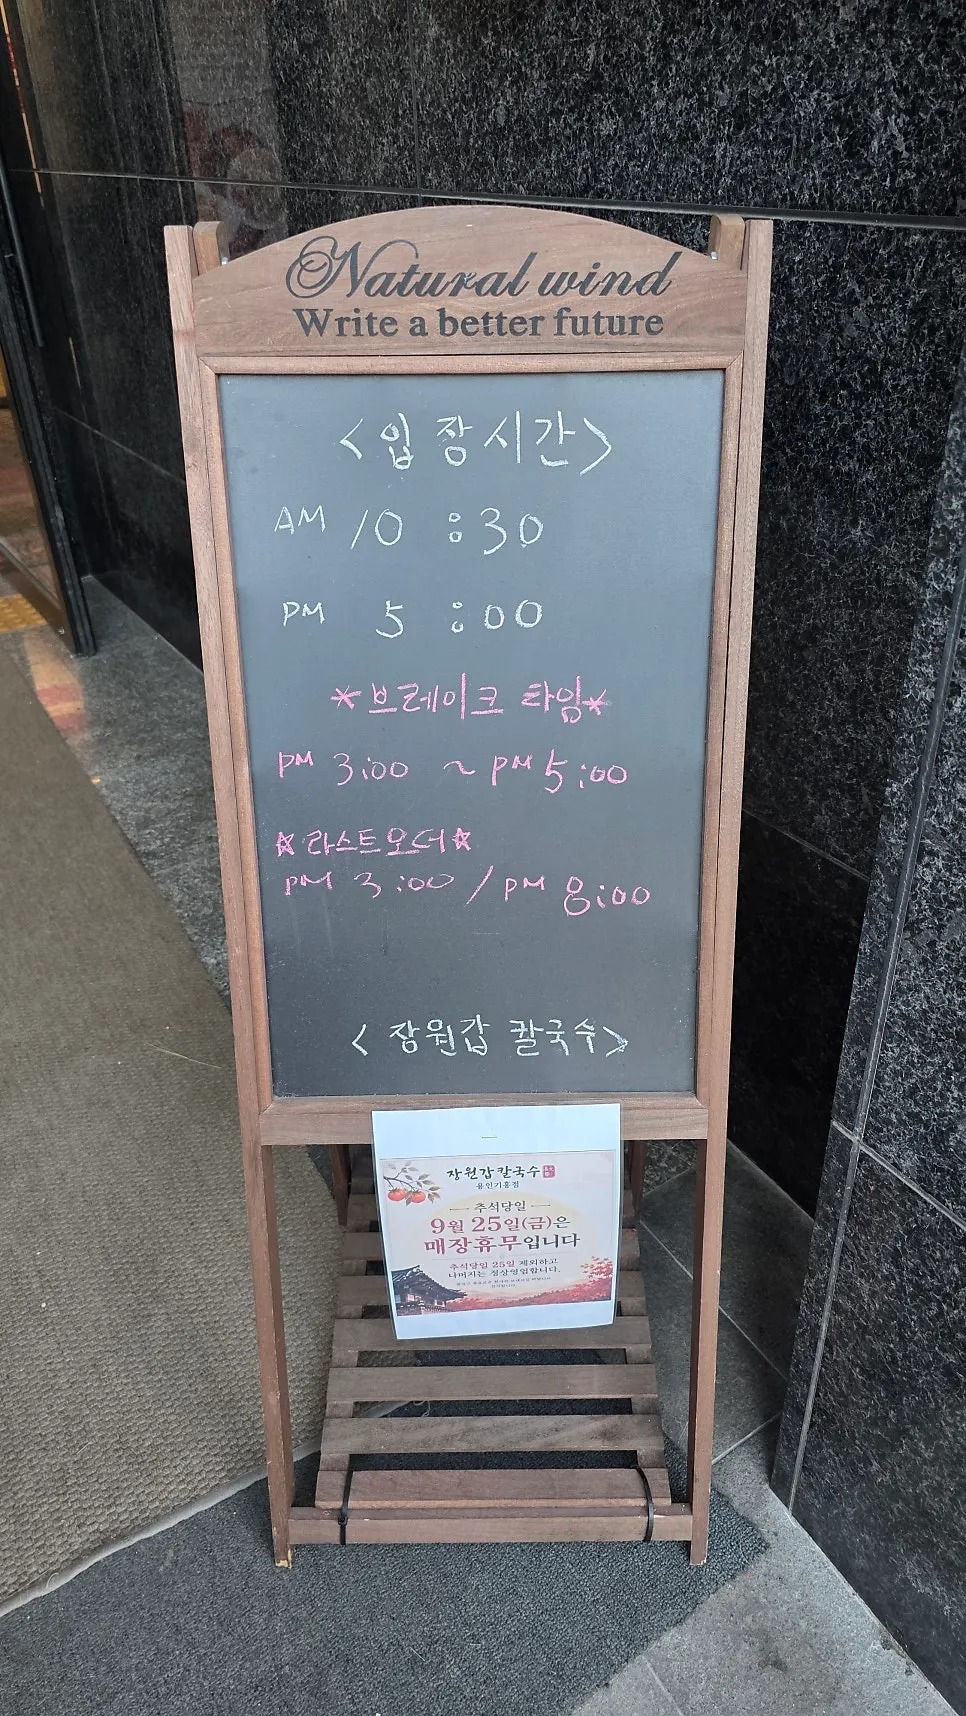 Natural wind
Write a better future
<입장시간>
AM 10:30
PM 5:00
*브레이크 타임*
PM 3:00 ~ PM 5:00
☆라스트오더☆
PM 3:00 / PM 8:00
<장원갑 칼국수>
장원갑칼국수
용인기흥점
추석당일
9월 25일(금)은
매장휴무입니다
추석당일 25일 제외하고
나머지는 정상영업합니다.